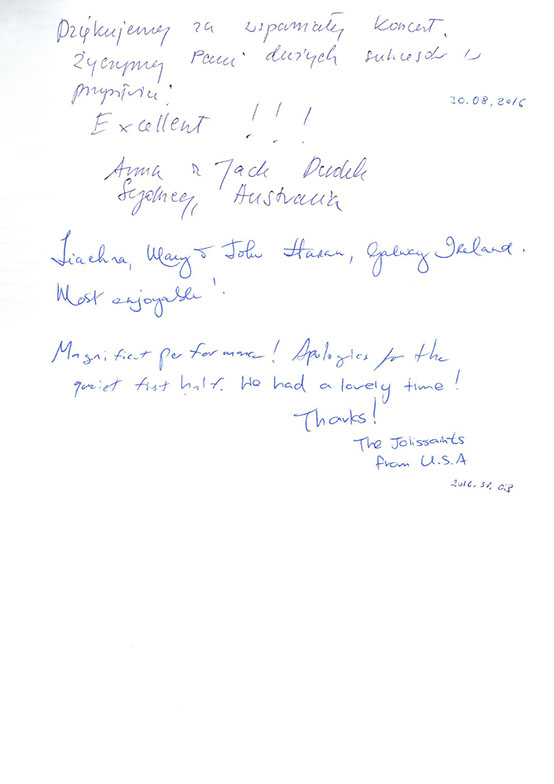 Dziękujemy za wspaniały koncert.
Życzymy Pani dużych sukcesów w
przyszłości!
30.08.2016
Excellent !!!
Anna & Jack Dudek
Sydney, Australia
Fiachra, Mary & John Haran, Galway Ireland.
Most enjoyable!
Magnificat performance! Apologies for the
quiet first half. We had a lovely time!
Thanks!
The Jolissaints
from U.S.A